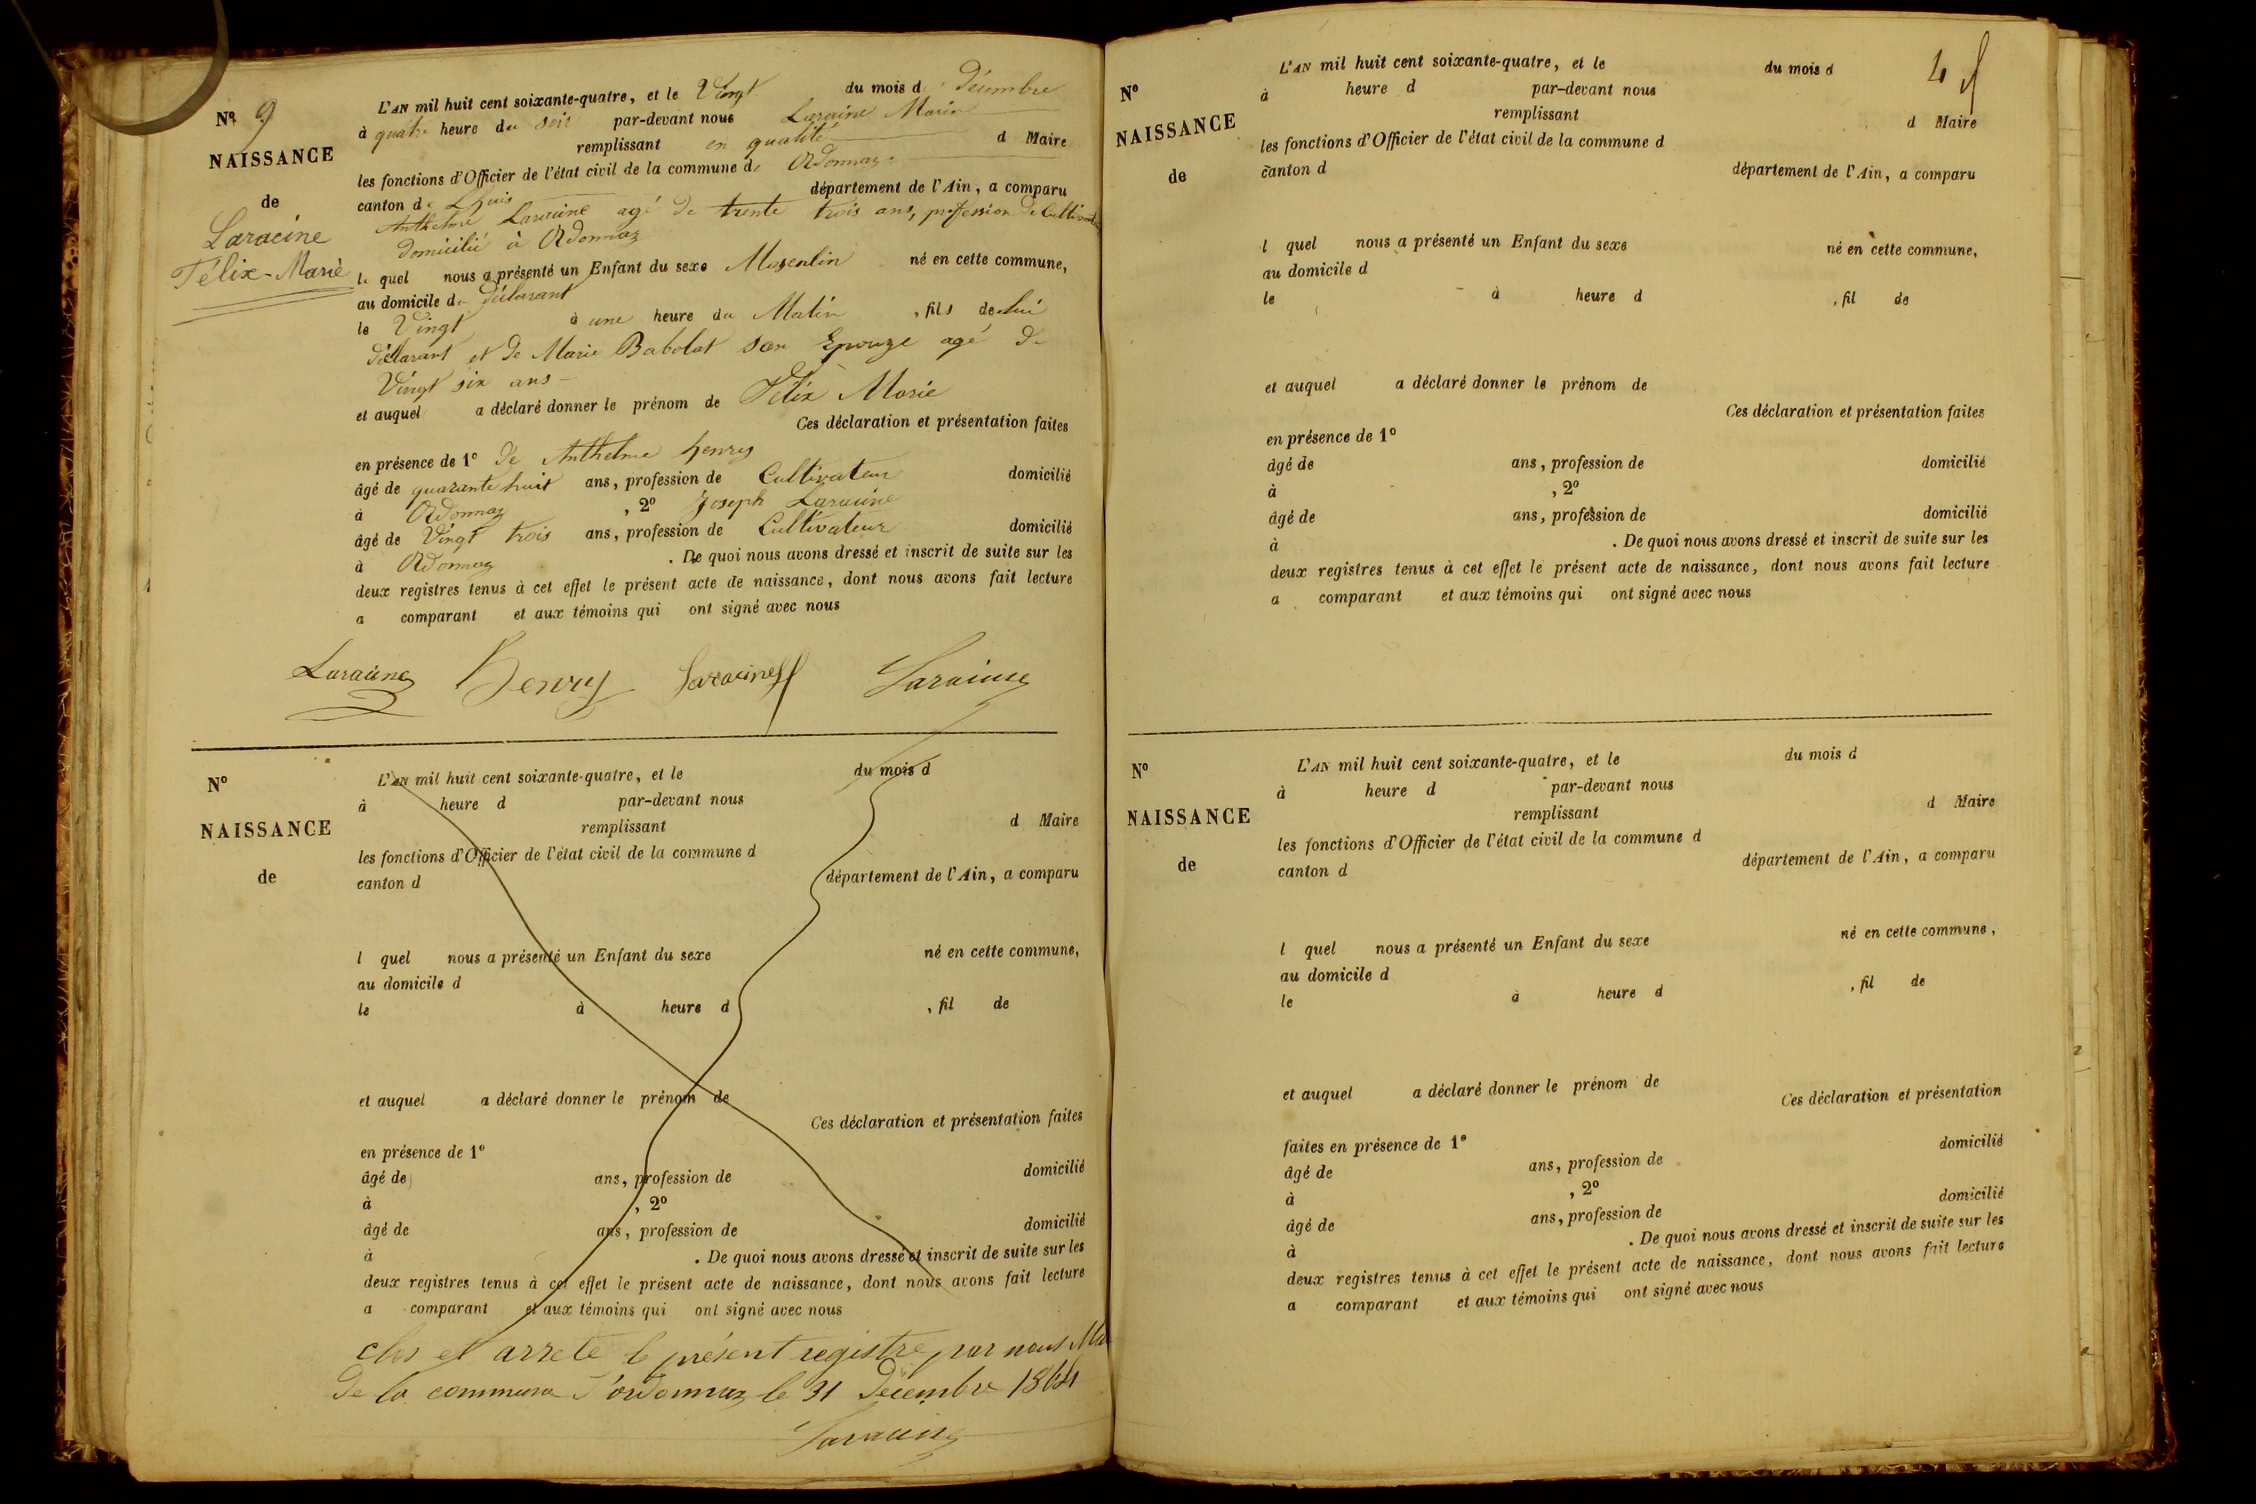 Nº 9
NAISSANCE
de
Laracine
Félix-Marie
L'AN mil huit cent soixante-quatre, et le Vingt du mois d Décembre
à quatre heure du soir par-devant nous Laracine Marin
remplissant en qualité d Maire
les fonctions d'Officier de l'état civil de la commune d' Ordonnaz
canton de Lhuis département de l'Ain, a comparu
Anthelme Laracine agé de trente trois ans, profession de Cultivateur
domicilié à Ordonnaz
le quel nous a présenté un Enfant du sexe Masculin né en cette commune,
au domicile du déclarant
le Vingt à une heure du Matin , fils de lui
déclarant et de Marie Babolat son Epouze agé de
Vingt six ans
et auquel a déclaré donner le prénom de Félix Marie
Ces déclaration et présentation faites
en présence de 1º de Anthelme henry
âgé de quarante huit ans, profession de Cultivateur domicilié
à Ordonnaz , 2º Joseph Laracine
âgé de Vingt trois ans, profession de Cultivateur domicilié
à Ordonnaz . De quoi nous avons dressé et inscrit de suite sur les
deux registres tenus à cet effet le présent acte de naissance, dont nous avons fait lecture
a comparant et aux témoins qui ont signé avec nous
Laracine Henry Laracine Laracine
Nº
NAISSANCE
de
L'AN mil huit cent soixante-quatre, et le du mois d
à heure d par-devant nous
remplissant d Maire
les fonctions d'Officier de l'état civil de la commune d
canton d département de l'Ain, a comparu
l quel nous a présenté un Enfant du sexe né en cette commune,
au domicile d
le à heure d , fil de
et auquel a déclaré donner le prénom de
Ces déclaration et présentation faites
en présence de 1º
âgé de ans, profession de domicilié
à , 2º
âgé de ans, profession de domicilié
à . De quoi nous avons dressé et inscrit de suite sur les
deux registres tenus à cet effet le présent acte de naissance, dont nous avons fait lecture
a comparant et aux témoins qui ont signé avec nous
clos et arrete le présent registre par nous Ma
de la commune d'ordonnaz le 31 Décembre 1864
Laracine
Nº
NAISSANCE
de
L'AN mil huit cent soixante-quatre, et le du mois d
à heure d par-devant nous
remplissant d Maire
les fonctions d'Officier de l'état civil de la commune d
canton d département de l'Ain, a comparu
l quel nous a présenté un Enfant du sexe né en cette commune,
au domicile d
le à heure d , fil de
et auquel a déclaré donner le prénom de
Ces déclaration et présentation faites
en présence de 1º
âgé de ans, profession de domicilié
à , 2º
âgé de ans, profession de domicilié
à . De quoi nous avons dressé et inscrit de suite sur les
deux registres tenus à cet effet le présent acte de naissance, dont nous avons fait lecture
a comparant et aux témoins qui ont signé avec nous
Nº
NAISSANCE
de
L'AN mil huit cent soixante-quatre, et le du mois d
à heure d par-devant nous
remplissant d Maire
les fonctions d'Officier de l'état civil de la commune d
canton d département de l'Ain, a comparu
l quel nous a présenté un Enfant du sexe né en cette commune,
au domicile d
le à heure d , fil de
et auquel a déclaré donner le prénom de
Ces déclaration et présentation
faites en présence de 1º
âgé de ans, profession de domicilié
à , 2º
âgé de ans, profession de domicilié
à . De quoi nous avons dressé et inscrit de suite sur les
deux registres tenus à cet effet le présent acte de naissance, dont nous avons fait lecture
a comparant et aux témoins qui ont signé avec nous